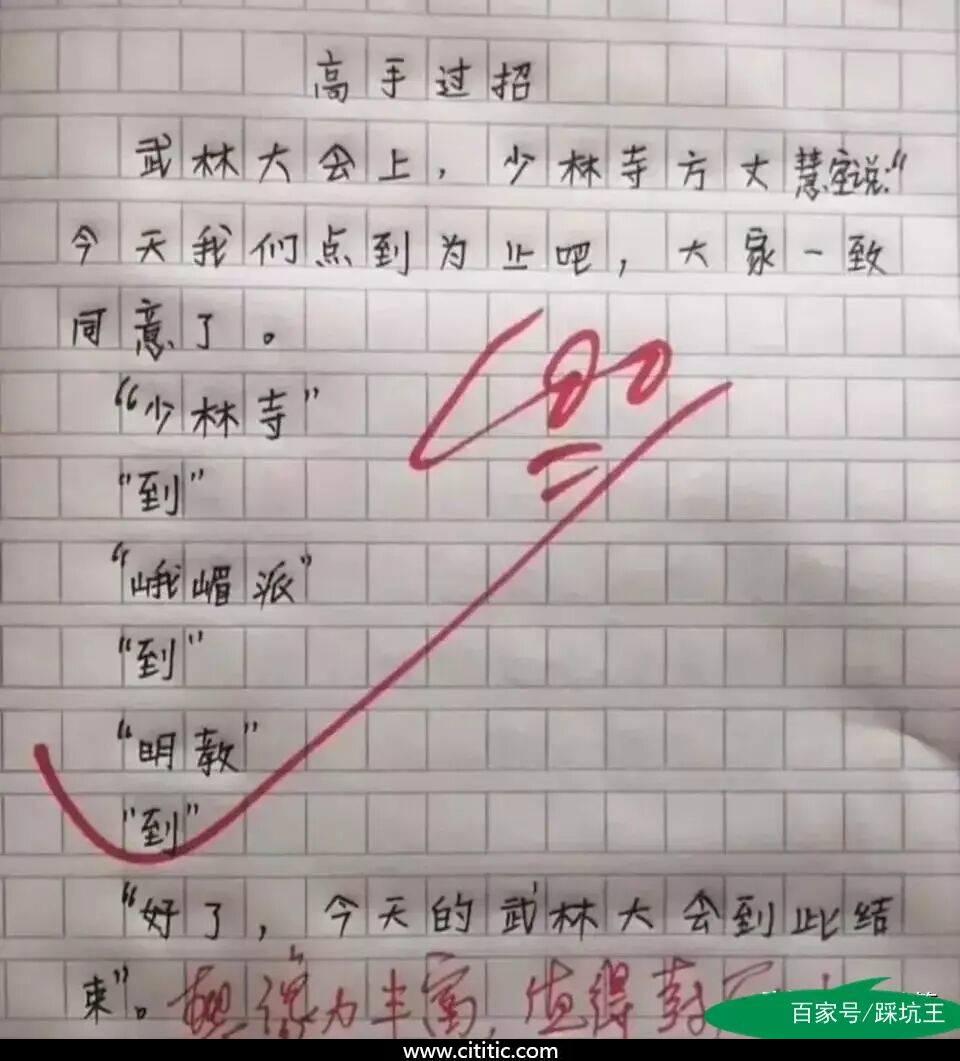 高手过招
武林大会上，少林寺方丈慧空说："
今天我们点到为止吧，大家一致
同意了。
100
"少林寺"
"到"
"峨嵋派"
"到"
"明教"
"到"
"好了，今天的武林大会到此结
束"。想象力丰富，值得
百家号/踩坑王
www.cititic.com